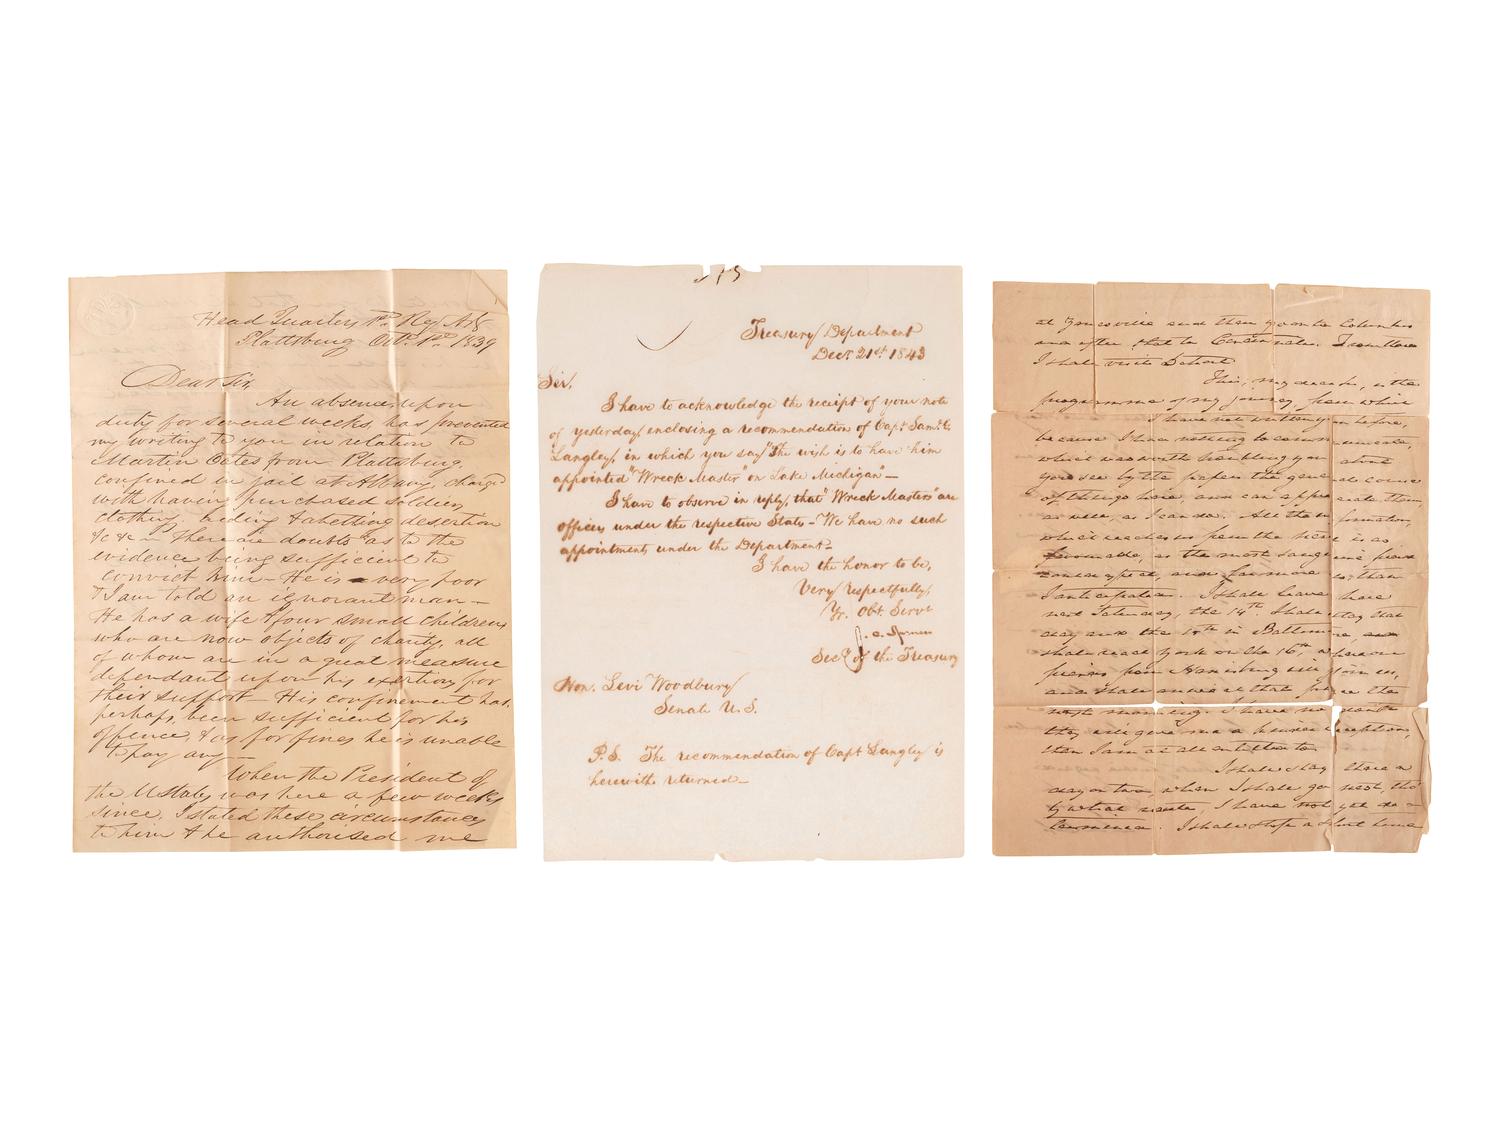 Head Quarters 1st Reg. Art.
Plattsburg Oct. 1st 1839
Dear Sir,
An absence, upon
duty for several weeks, has prevented
my writing to you in relation to
Martin Oates from Plattsburg,
confined in jail at Albany, charged
with having purchased soldiers
clothing, aiding & abetting desertion
&c &c — There are doubts as to the
evidence being sufficient to
convict him — He is very poor
& I am told an ignorant man —
He has a wife & four small children,
who are now objects of charity, all
of whom are in a great measure
dependant upon his exertions for
their support — His confinement has,
perhaps, been sufficient for his
offence, & as for fines he is unable
to pay any —
When the President of
the U States was here a few weeks
since, I stated these circumstances
to him & he authorised me
Treasury Department
Decr. 21st 1843
Sir,
I have to acknowledge the receipt of your note
of yesterday, enclosing a recommendation of Capt. Saml. C.
Langley, in which you say "The wish is to have him
appointed "Wreck Master" on Lake Michigan" —
I have to observe in reply, that "Wreck Masters" are
officers under the respective States — We have no such
appointments under the Department —
I have the honor to be,
Very respectfully,
Yr. Obt. Servt
J. C. Spencer
Secy. of the Treasury
Hon. Levi Woodbury
Senate U. S.
P.S. The recommendation of Capt Langley is
herewith returned —
at Zanesville and then go on to Columbus
and after that to Cincinnati. From there
I shall visit Detroit
This, my dear Sir, is the
programme of my journey, from which
I have not written you before,
because I have nothing to communicate,
which was worth troubling you about
you see by the papers the general course
of things here, and can appreciate them,
as well, as I can do. All the information,
which reaches us from the scene is as
favourable, as the most sanguine friend
could expect, and far more so, than
I anticipated. I shall leave here
next Saturday, the 14th. I shall stay that
day and the 15th in Baltimore and
shall reach York on the 16th, where some
friends from Harrisburg will join us,
and shall arrive at that place the
next morning. I have no doubt
they will give me a kinder reception,
than I am at all entitled to
I shall stay there a
day or two when I shall go west, tho
by what route, I have not yet de-
termined. I shall stop a short time